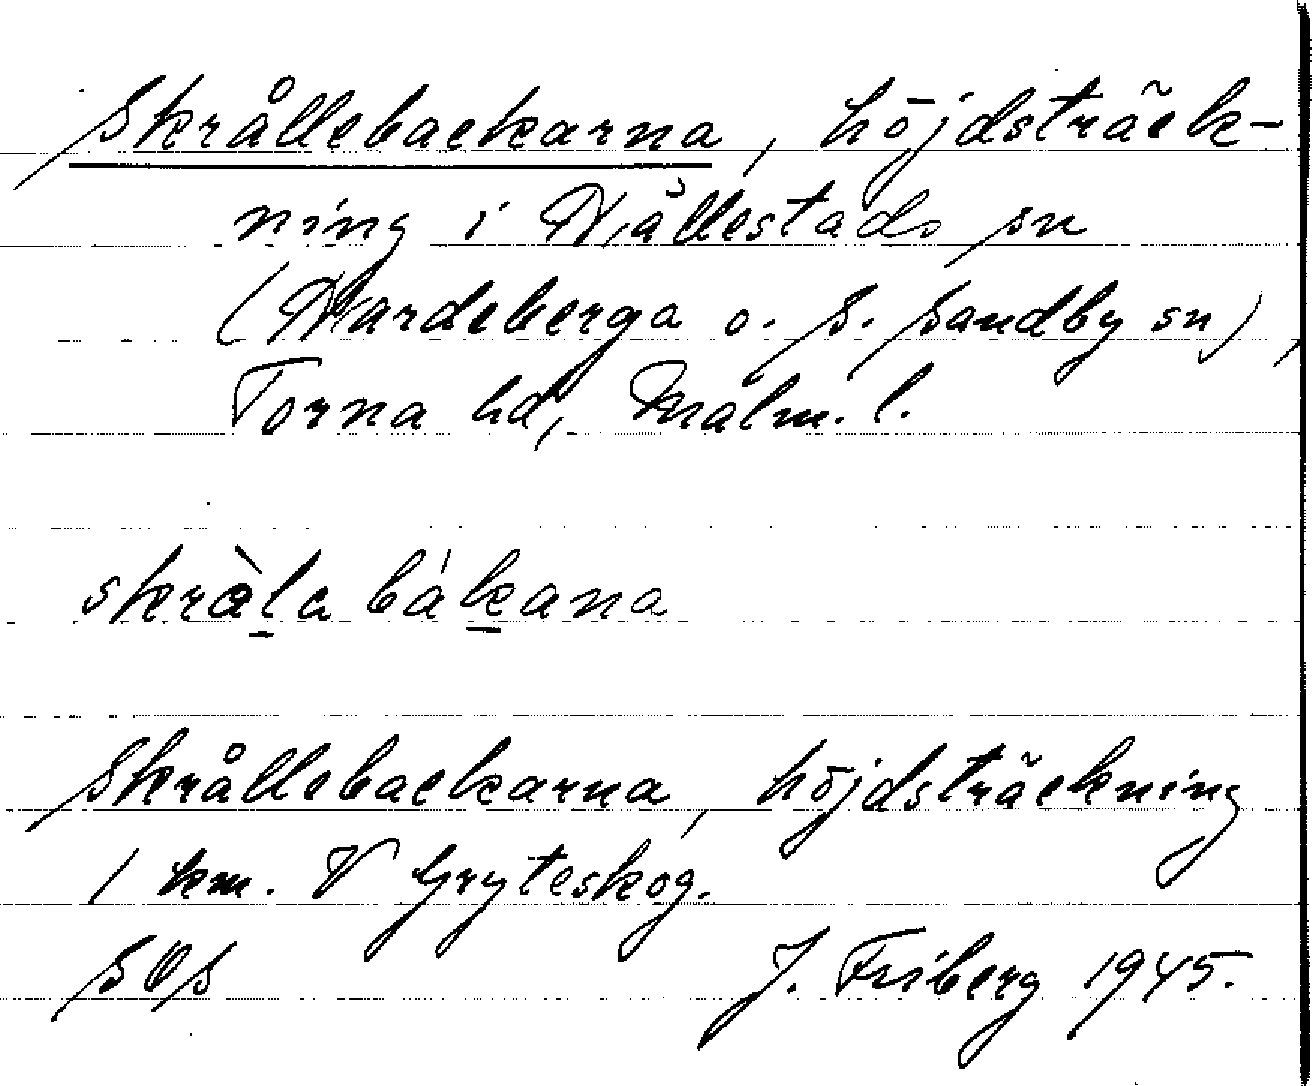 Skrållebackarna, höjdsträck-
ning i Hällestads sn
(Hardeberga o. S. Sandby sn),
Torna hd, Malm. l.
skràla bákana
Skrållebackarna, höjdsträckning
1 km. V Gryteskog.
SOS J. Friberg 1945.